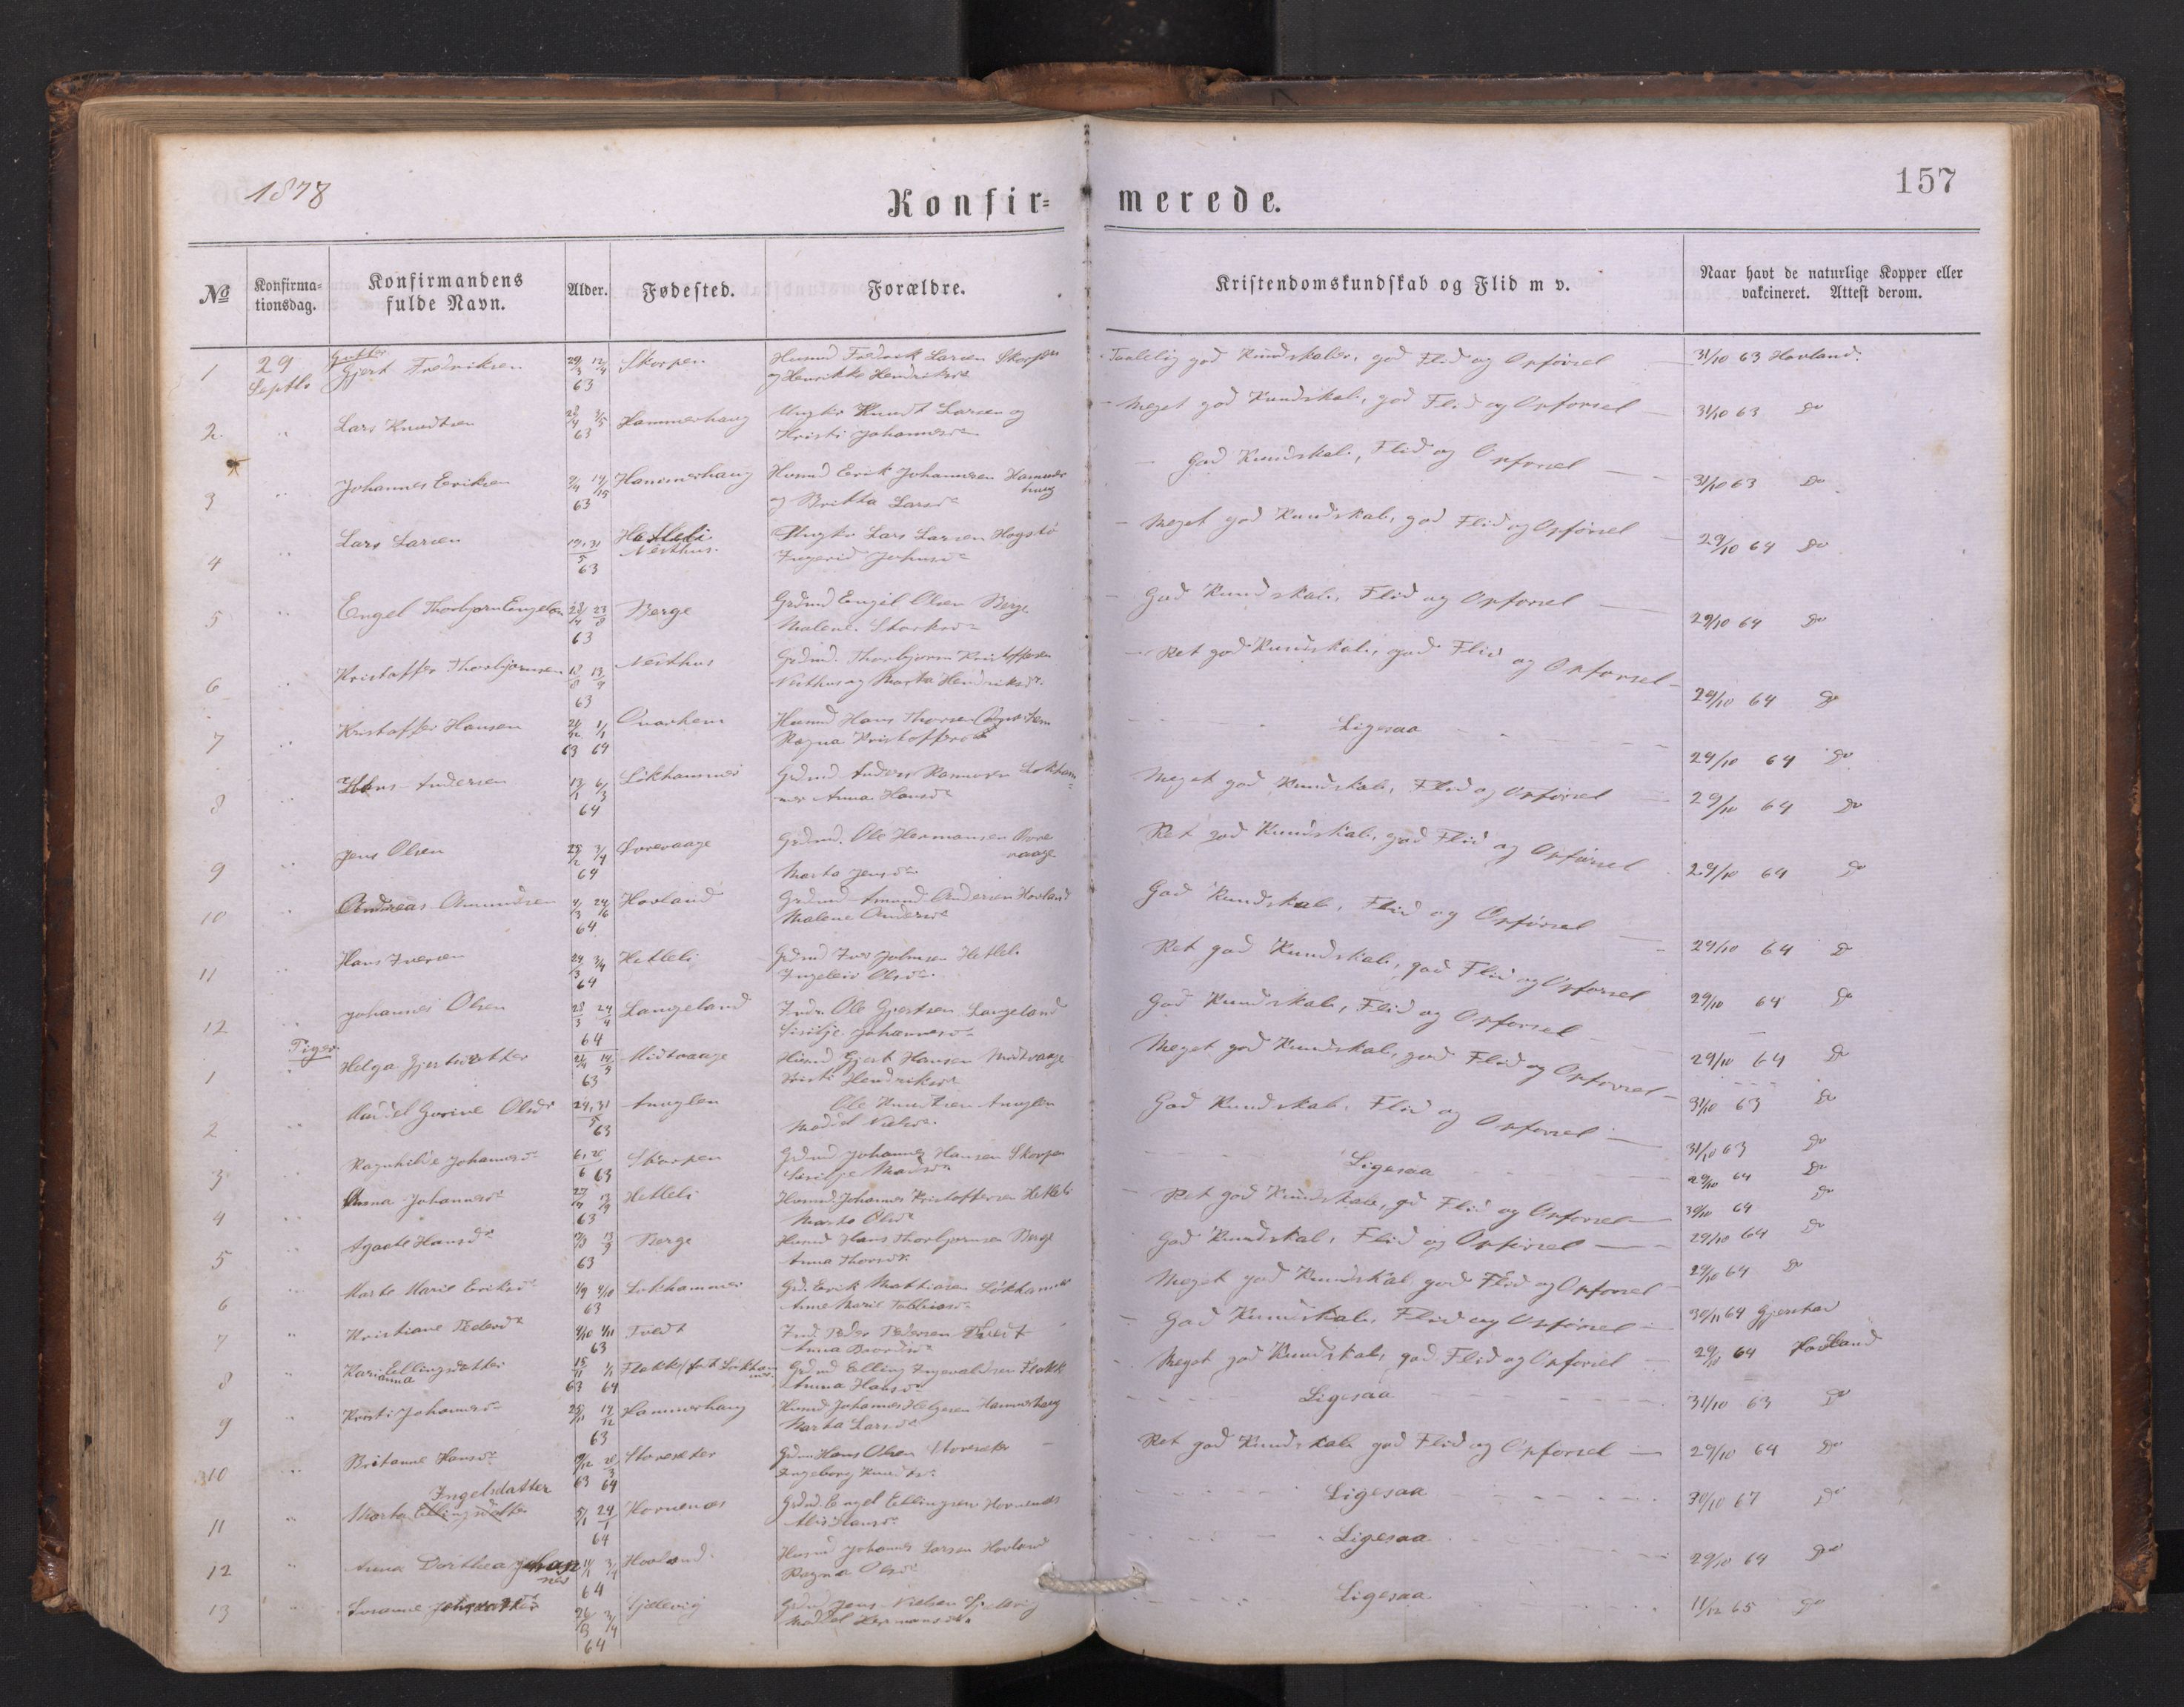 1878
Konfir=
merede.
157
No
Konfirma=
tionsdag.
Konfirmandens
fulde Navn.
Alder.
Fødested.
Forældre.
Kristendomskundskab og Flid m v.
Naar havt de naturlige Kopper eller
vakcineret. Attest derom.
Gutter
1 29 Septb Gjert Fredriksen 29/3 12/4 63 Skorpen
Husmd Fredrik Larsen Skorpen
og Henrikke Hendriksd
Taalelig god Kundskaber, god Flid og Opførsel 31/10 63 Hovland.
2 " Lars Knudtsen 63 Hammerhaug
Ungkr Knudt Larsen og
Kristi Johannesd
Meget god Kundskab, god Flid og Opførsel 31/10 63 do
3 " Johannes Eriksen 63 Hammerhaug
Husmd Erik Johannesen Hammer
haug
og Britha Larsd
God Kundskab, Flid og Opførsel 31/10 63 do
4 " Lars Larsen 19, 31/5 63 Hetleli
Nesthus.
Ungkr Lars Larsen Hogstø
Ingerid Johnsd
Meget god Kundskab, god Flid og Opførsel 29/10 64 do
5 " Engel Thorbjørn Engelsen 28/4 23/8 63 Berge
Grdmd Engel Olsen Berge
Malene
God Kundskab, Flid og Opførsel 29/10 64 do
6 " Kristoffer Thorbjørnsen 13/9 63 Nesthus
Grdmd. Thorbjørn Kristoffersen
Nesthus og Marta Hendriksd.
Ret god Kundskab, god Flid og Opførsel 29/10 64 do
7 " Kristoffer Hansen 1/1 63 64 Qvarhem
Husmd Hans Thorsen
Ragna Kristoffersd
Ligesaa 29/10 64 do
8 " Hans Andersen 13/1 6/3 64 Løkhammer
Grdmd Anders Rasmusen Løkham=
mer Anna Hansd
Meget god Kundskab, Flid og Opførsel 29/10 64 do
9 " Jens Olsen 28/2 3/4 64
Grdmd. Ole Hermansen
vaage
Marta Jensd
Ret god Kundskab, god Flid og Opførsel 29/10 64 do
10 " Andreas Amundsen 64 Hovland
Grdmd Amund Andersen Hovland
Malene Andersd
God Kundskab, Flid og Opførsel 29/10 64 do
11 " Hans Iversen 29/3 3/4 64 Hetleli
Grdmd Iver Johnsen Hetleli
Ingeleiv Olsd
Ret god Kundskab, god Flid og Opførsel 29/10 64 do
12 " Johannes Olsen 28/3 24/4 64 Langeland
Indr. Ole Gjertsen Langeland
Sisilje Johannesd
God Kundskab, Flid og Opførsel 29/10 64 do
Piger
1 " Helga Gjertsdatter 63 Midtvaage
Husmd Gjert Hansen Midtvaage
Kristi Hendriksd
Meget god Kundskab, god Flid og Opførsel 31/10 63 do
2 " Gurine Olsdr 24, 31/5 63 Anuglen
Ole Knudtsen Anuglen
Madel Nielsd.
God Kundskab, Flid og Opførsel 31/10 63 do
3 " Ragnhilde Johannesd 6, 20/6 63 Skorpen
Grdmd Johannes Hansen Skorpen
Sisilje Madsd
Ligesaa 29/10 64 do
4 " Anna Johannesd 63 Hetleli
Husmd. Johannes Kristoffersen Hetleli
Marta Olsd
Ret god Kundskab, gd Flid og Opførsel 30/10 64 do
5 " Agaate Hansd 63 Berge
Husmd Hans Thorbjørnsen Berge
Anna Thorsd.
God Kundskab, Flid og Opførsel 29/10 64 do
6 " Marta Marie Eriksd 63 Løkhammer
Gd. Erik Mathiasen Løkhammer
Anne Marie Tobiasd
Meget god Kundskab god Flid og Opførsel 29/10 64 do
7 " Kristiane Pedersd 63 Tvedt
Ind. Peder Pedersen Tvedt
Anna
God Kundskab, Flid og Opførsel 30/11 64 Gjerstad
8 " Kari anna Ellingsdatter 63 64 Flakk, født Løkham
mer
Grdmd Elling Ingevaldsen Flakk
Anna Hansd
Meget god Kundskab, god Flid og Opførsel 29/10 64 Hovland
9 " Kristi Johannesd 63 Hammerhaug
Husmd Johannes Helgesen Hammerhaug
Marta Larsd
Ligesaa 31/10 63 do
10 " Britanne Hansd 63 64 Storeseter
Grdm Hans Olsen Storeseter
Ingeborg Knudtsd.
Ret god Kundskab god Flid og Opførsel 29/10 64 do
Ingelsdatter
11 " Marta Ellingsdatter 24/1 64 Hornenes
Grdmd. Engel Ellingsen Hornenes
Hansd
Ligesaa 30/10 67 do
12 " Anna Dorthea Johan
nes 64 Hovland.
Husmd Johannes Larsen Hovland
Ragna Olsd
Ligesaa 29/10 64 do
13 " Susanne 64
Grdmd Jens Nielsen
Madel Hermansd.
Ligesaa. 11/12 65 do